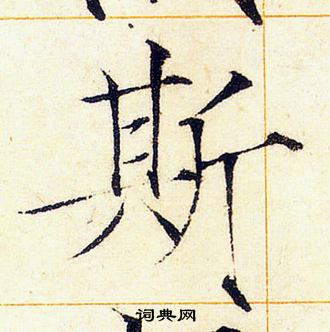 斯
词典网